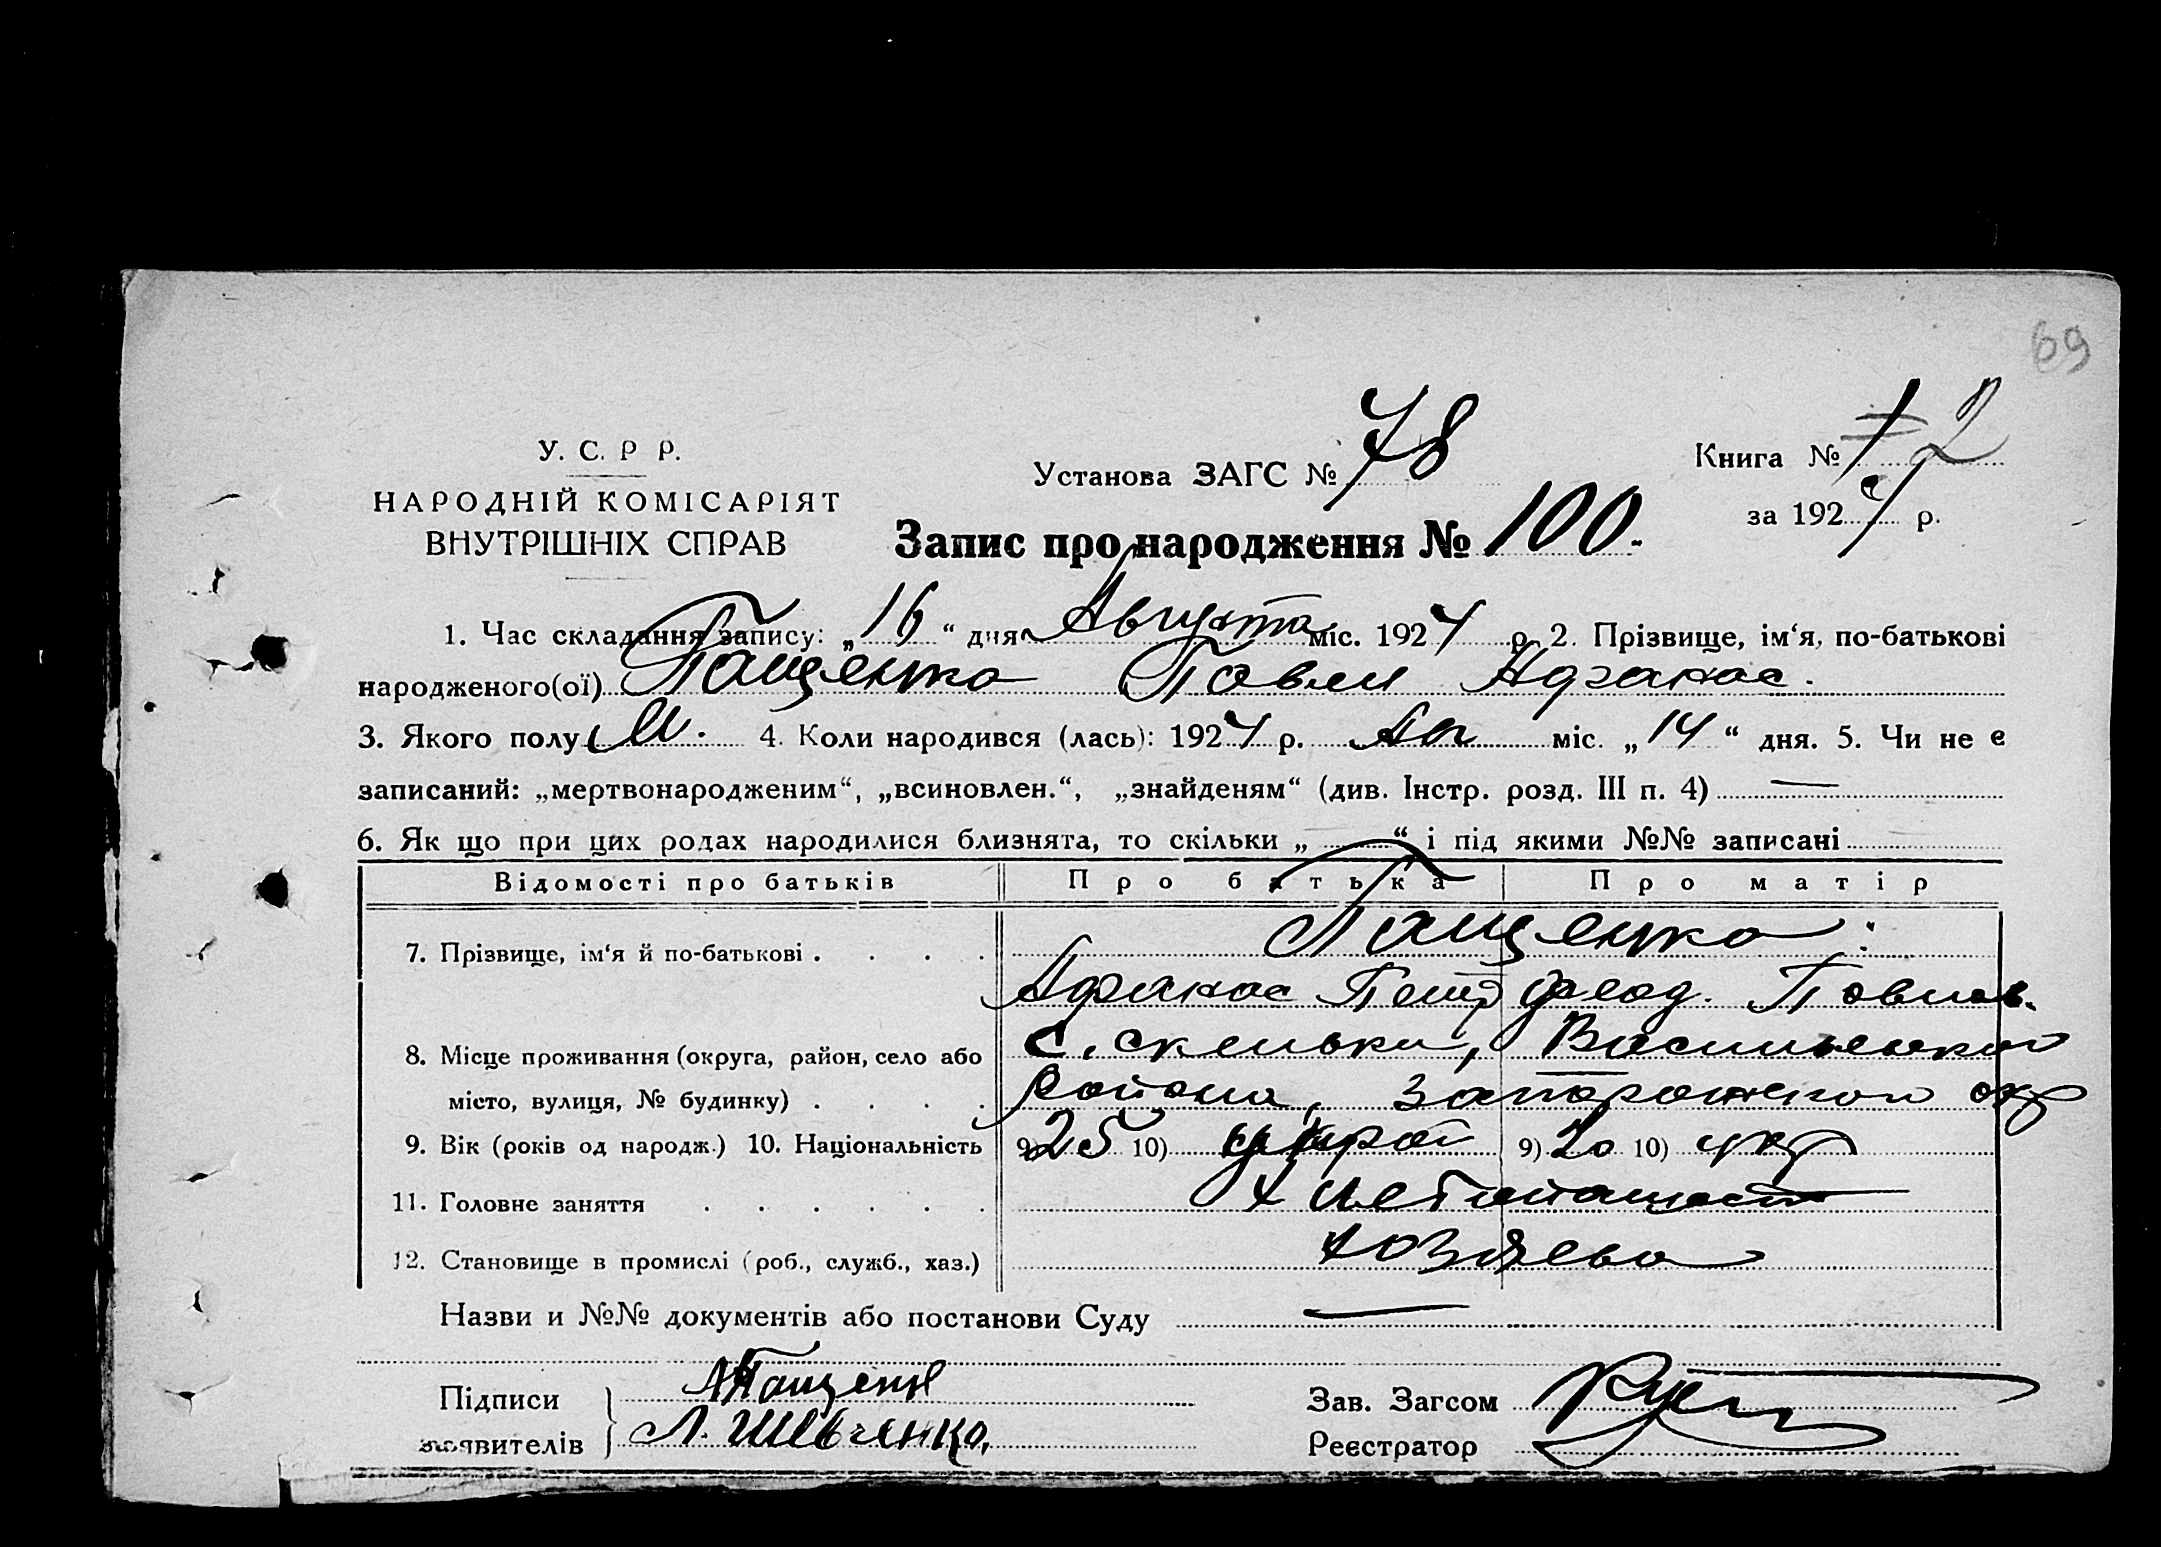 69
У. С. Р Р.
НАРОДНІЙ КОМІСАРІЯТ
ВНУТРІШНІХ СПРАВ
Установа ЗАГС № 78
Книга № 1 2
за 1927 р.
Запис про народження № 100.
1. Час складання запису: „16“ дня Августа міс. 1927 р. 2. Прізвище, ім‘я, по-батькові
народженого(ої) Пащенко Павел Афанас.
3. Якого полу М. 4. Коли народився (лась): 1927 р. Ав міс. „14“ дня. 5. Чи не є
записаний: „мертвонародженим“, „всиновлен.“, „знайденям“ (див. Інстр. розд. III п. 4) —
6. Як що при цих родах народилися близнята, то скільки „ “ і під якими №№ записані
Відомості про батьків Про батька Про матір
7. Прізвище, ім‘я й по-батькові . . . . Пащенко:
Афанас Петр Феод. Павлов.
8. Місце проживання (округа, район, село або С. Скельки, Васильевского
місто, вулиця, № будинку) . . . . района, Запорожской окр
9. Вік (років од народж.) 10. Національність 9) 25 10) 9) 20 10) укр
11. Головне заняття . . . . . . Хлебопашест
12. Становище в промислі (роб., служб., хаз.) хозяева
Назви и №№ документів або постанови Суду —
Підписи АПащенко
заявителів Л. Шевченко.
Зав. Загсом
Реєстратор